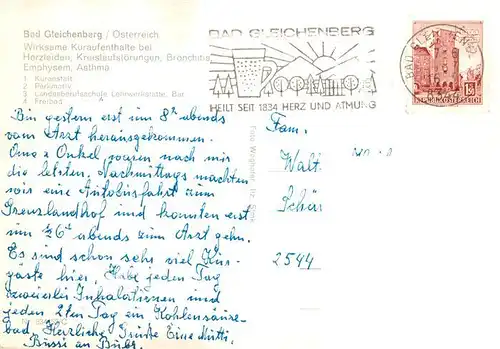 Bad Gleichenberg / Österreich
Wirksame Kuraufenthalte bei
Herzleiden, Kreislaufstörungen, Bronchitis
Emphysem, Asthma
1. Kuranstalt
2. Parkmotiv
3. Landesberufsschule Lehrwerkstätte, Bar
4. Freibad
BAD GLEICHENBERG
HEILT SEIT 1834 HERZ UND ATMUNG
REPUBLIK ÖSTERREICH
Bin gestern erst um 8h abends
vom Arzt herausgekommen.
Oma u Onkel waren nach mir
die letzten. Nachmittags machten
wir eine Autobusfahrt zum
Grenzlandhof und konnten erst
um ½6h abends zum Arzt gehn.
Es sind schon sehr viel Kur-
gäste hier. Habe jeden Tag
zweierlei Inhalationen und
jeden 2ten Tag ein Kohlensäure-
bad. Herzliche Grüße Eure Mutti
Bussi an Bubi.
Fam.
Walt.
Schür
2544